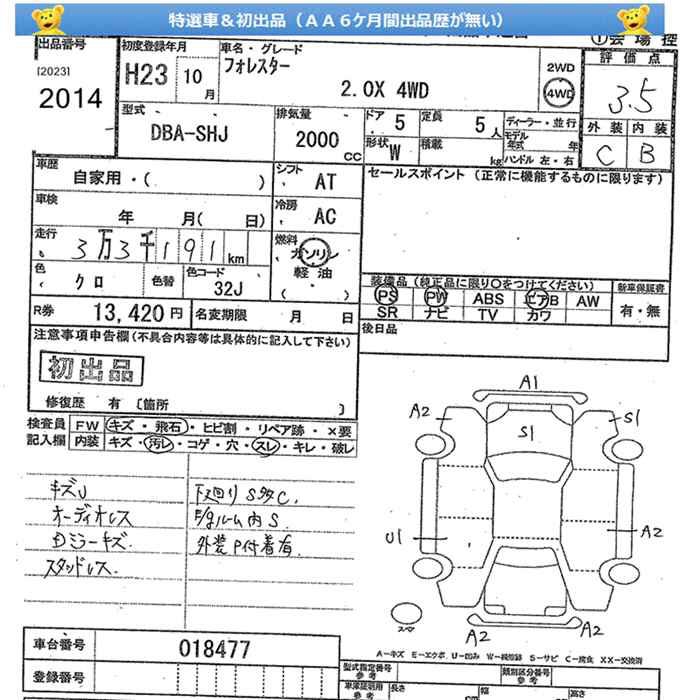 特選車＆初出品（ＡＡ６ケ月間出品歴が無い）
①会場控
出品番号
[2023]
2014
初度登録年月
H23 10月
車名・グレード
フォレスター
2.0X 4WD
2WD
4WD
評価点
3.5
外装 内装
C B
型式
DBA-SHJ
排気量
2000 CC
ドア
5
定員
5人
形状
W
積載
kg
ディーラー・並行
モデル年式 年
ハンドル 左・右
車歴
自家用・( )
シフト
AT
セールスポイント（正常に機能するものに限ります）
車検
年 月( 日)
冷房
AC
走行
3万3千191km
燃料
ガソリン
軽油
( )
色
クロ
色替
色コード
32J
装備品（純正品に限り○をつけてください）
PS PW ABS エアB AW
SR ナビ TV カワ
新車保証書
有・無
R券
13,420円
名変期限 月 日
後日品
注意事項申告欄（不具合内容等は具体的に記入して下さい）
初出品
修復歴 有 〔箇所 〕
検査員記入欄
FW キズ・飛石・ヒビ割・リペア跡・×要
内装 キズ・汚レ・コゲ・穴・スレ・キレ・破レ
キズJ
オーディオレス
Dミラーキズ
スタッドレス
下廻りS多C.
F/gルーム内S.
外装P付着有
A1
A2
S1
S1
U1
A2
A2
A2
スペア
A－キズ E－エクボ U－凹み W－補修跡 S－サビ C－腐食 XX－交換済
車台番号
018477
登録番号
型式指定番号
参考
類別区分番号
参考
車庫証明用
参考
長さ
幅
高さ